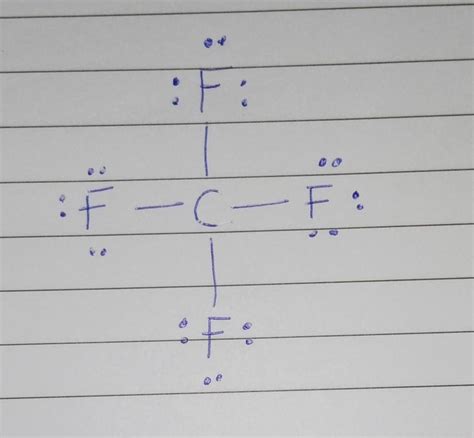 F
F — C — F
F